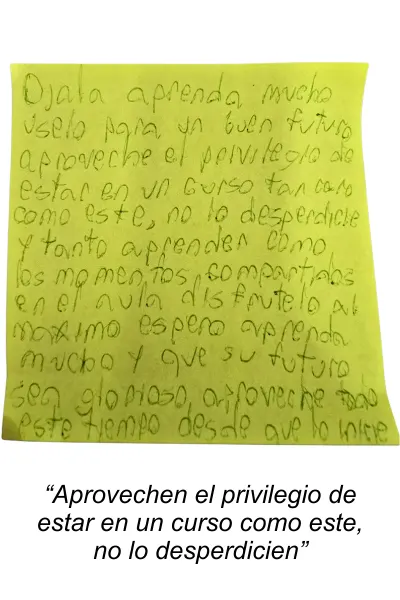 Ojala aprenda mucho
uselo para un buen futuro
aproveche el peivilegio de
estar en un curso tan caro
como este, no lo desperdicie
y tanto aprender como
los momentos, compartidos
en el aula disfrutelo al
maximo espero aprenda
mucho y que su futuro
sea glorioso, aproveche todo
este tiempo desde que lo inicie
“Aprovechen el privilegio de
estar en un curso como este,
no lo desperdicien”